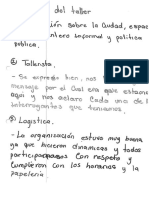 del taller
ión sobre la Ciudad, espac
ntero informal y politica
publica.
② Tallerista.
- Se expreso bien, nos
mensaje por el Cual era que estamos
aqui y nos aclaro Cada uno de l
interrogantes que teniamos.
③ Logistica.
- La organización estuvo muy buena
ya que hicieron dinamicas y todos
participaron Con respeto y
Cumplieron Con los horarios y la
papeleria.